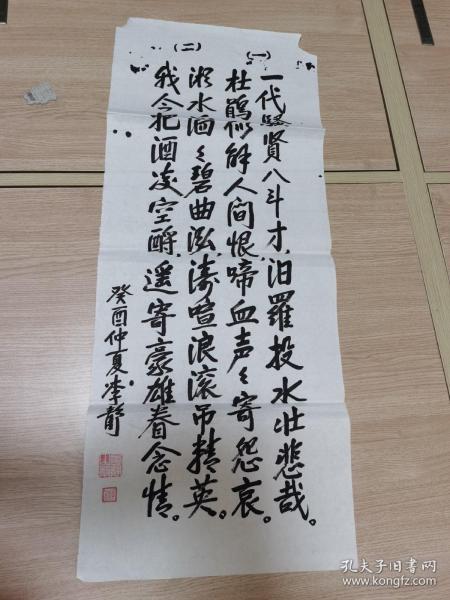 (一)
一代骚賢八斗才，汨羅投水壮悲哉。
杜鹃似解人间恨，啼血声々寄怨哀。
(二)
湘水洄々碧曲泓，涛喧浪滚吊精英。
我今把酒凌空酹，遥寄豪雄眷念情。
癸酉仲夏李静
孔夫子旧书网
www.kongfz.com